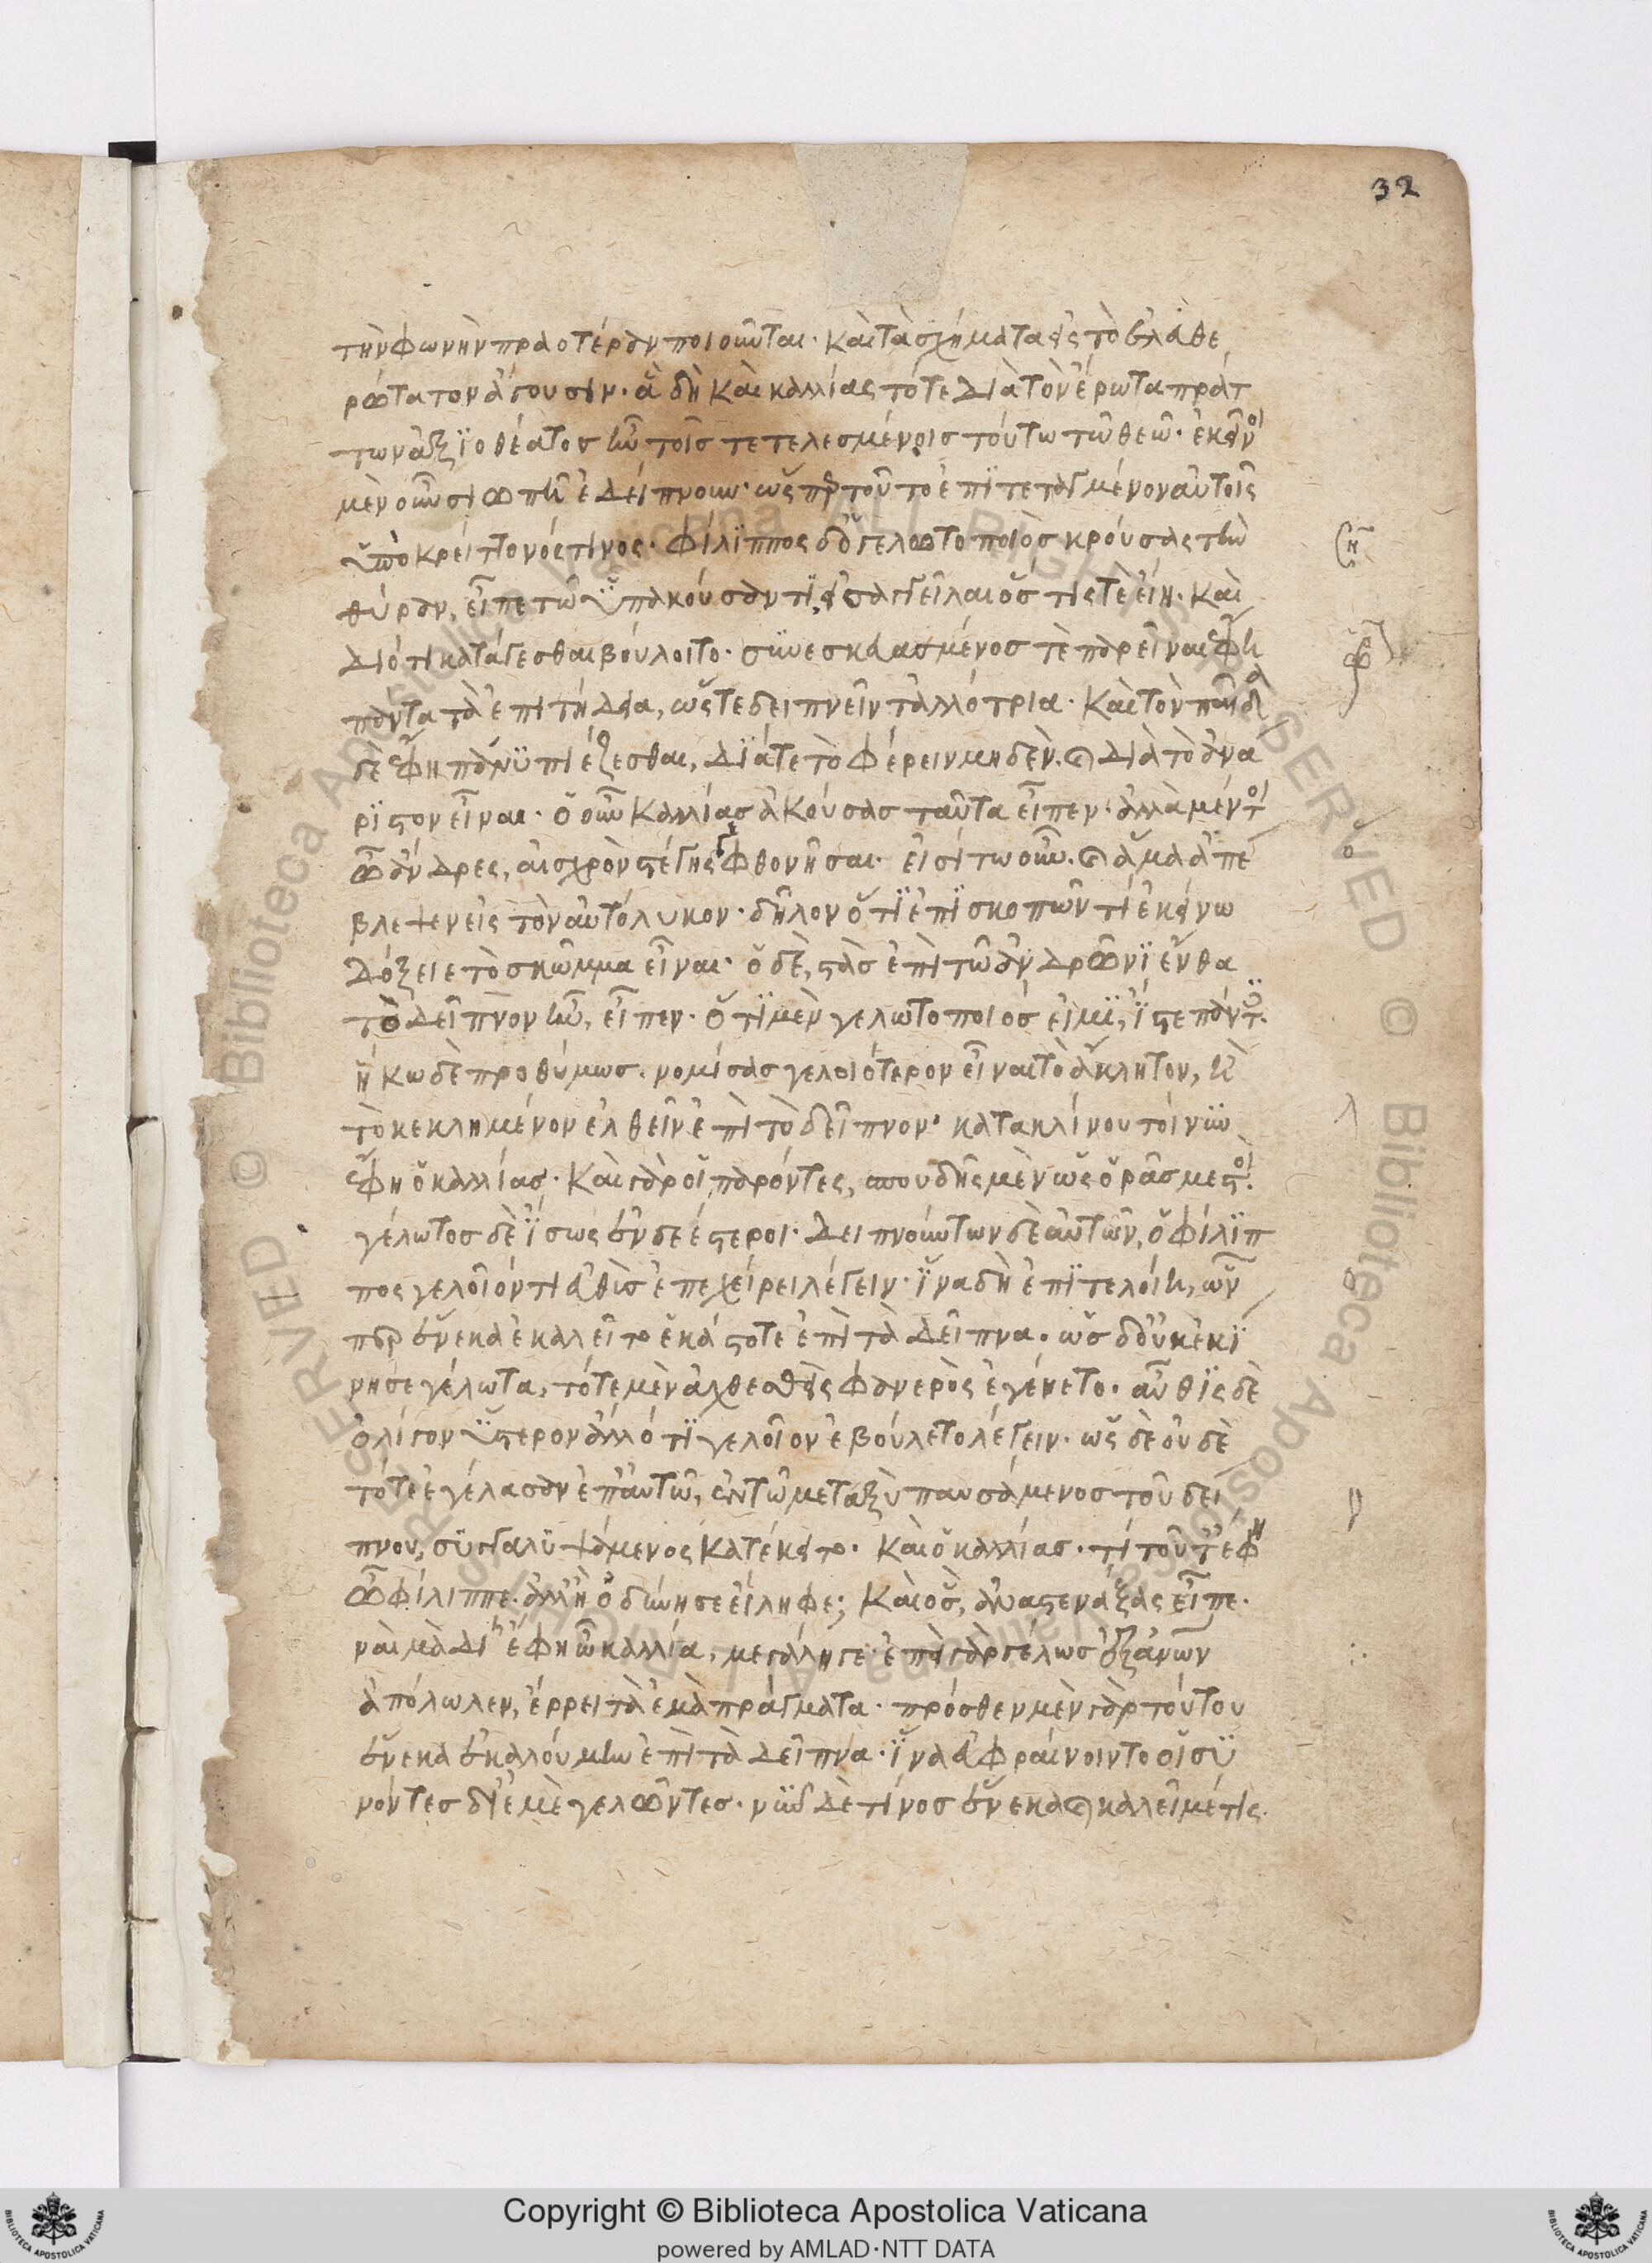 32
τὴν φωνὴν πραοτέραν ποιοῦνται· καὶ τὰ σχήματα εἰς τὸ ἐλευθε
ριώτατον ἄγουσιν· ἃ δὴ καὶ καλλίας τότε διὰ τὸν ἔρωτα πράτ
των ἀξιοθέατος ἦν τοῖς τετελεσμένοις τούτω τῶ θεῶ· ἐκεῖνοι
μὲν οὖν σιωπῆ ἐδείπνουν· ὥσπερ τοῦτο ἐπιτεταγμένον αὐτοῖς
ὑπὸ κρείττονός τινος· Φίλιππος δ' ὁ γελωτοποιὸς κρούσας τὴν
θύραν, εἶπε τῶ ὑπακούσαντι, εἰσαγγεῖλαι ὅστις τε εἴη· καὶ
διότι κατάγεσθαι βούλοιτο· συνεσκευασμένος τε παρεῖναι ἔφη
πάντα τὰ ἐπιτήδεια, ὥστε δειπνεῖν τἀλλότρια· καὶ τὸν παῖδα
δὲ ἔφη πάνυ πιέζεσθαι, διά τε τὸ φέρειν μηδὲν. καὶ διὰ τὸ ἀνά
ριστον εἶναι· ὁ οὖν Καλλίας ἀκούσας ταῦτα εἶπεν· ἀλλὰ μέντοι
ὦ ἄνδρες, αἰσχρὸν στέγης γε φθονῆσαι· εἰσίτω οὖν. καὶ ἅμα ἀπέ
βλεψεν εἰς τὸν αὐτόλυκον· δῆλον ὅτι ἐπισκοπῶν τί ἐκείνω
δόξειε τὸ σκῶμμα εἶναι· ὁ δὲ, στὰς ἐπὶ τῶ ἀνδρῶνι ἔνθα
τὸ δεῖπνον ἦν, εἶπεν· ὅτι μὲν γελωτοποιός εἰμι, ἴστε πάντες·
ἥκω δὲ προθύμως· νομίσας γελοιότερον εἶναι τὸ ἄκλητον, ἢ
τὸ κεκλημένον ἐλθεῖν ἐπὶ τὸ δεῖπνον· κατακλίνου τοίνυν
ἔφη ὁ καλλίας· καὶ γὰρ οἱ παρόντες, σπουδῆς μὲν ὡς ὁρᾶς μεστοί·
γέλωτος δὲ ἴσως ἐνδεέστεροι· δειπνούντων δὲ αὐτῶν, ὁ φίλιπ
πος γελοῖόν τι εὐθὺς ἐπεχείρει λέγειν· ἵνα δὴ ἐπιτελοίη, ὧν
περ ἕνεκα ἐκαλεῖτο ἑκάστοτε ἐπὶ τὰ δεῖπνα· ὡς δ' οὐκ ἐκί
νησε γέλωτα, τότε μὲν ἀχθεσθεὶς φανερὸς ἐγένετο· αὖθις δὲ
ὀλίγον ὕστερον ἄλλό τι γελοῖον ἐβούλετο λέγειν· ὡς δὲ οὐδὲ
τότε ἐγέλασαν ἐπ' αὐτῶ, ἐν τῶ μεταξὺ παυσάμενος τοῦ δεί
πνου, συγκαλυψάμενος κατέκειτο· καὶ ὁ καλλίας· τί τοῦτ' ἔφη
ὦ φίλιππε· ἀλλ' ἦ ὀδύνη σε εἴληφε; καὶ ὃς, ἀναστενάξας εἶπε·
ναὶ μὰ Δί' ἔφη ὦ καλλία, μεγάλη γε· ἐπεὶ γὰρ γέλως ἐξ ἀνθρώπων
ἀπόλωλεν, ἔρρει τὰ ἐμὰ πράγματα· πρόσθεν μὲν γὰρ τούτου
ἕνεκα ἐκαλούμην ἐπὶ τὰ δεῖπνα· ἵνα εὐφραίνοιντο οἱ συ
νόντες δι' ἐμὲ γελῶντες· νῦν δὲ τίνος ἕνεκα καὶ καλεῖ μέ τις·
Copyright © Biblioteca Apostolica Vaticana
powered by AMLAD·NTT DATA